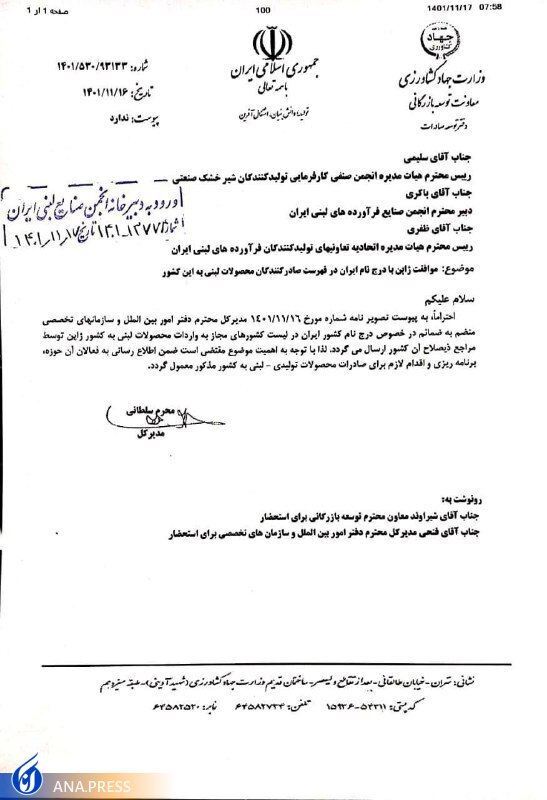 1401/11/17 07:58
100
صفحه ۱ از ۱
جهاد
کشاورزی
وزارت جهاد کشاورزی
معاونت توسعه بازرگانی
دفتر توسعه صادرات
جمهوری اسلامی ایران
باسمه تعالی
تولید؛ دانش بنیان، اشتغال آفرین
شماره: ۱۴۰۱/۵۳۰/۹۳۱۳۳
تاریخ: ۱۴۰۱/۱۱/۱۶
پیوست: ندارد
جناب آقای سلیمی
رییس محترم هیات مدیره انجمن صنفی کارفرمایی تولیدکنندگان شیر خشک صنعتی
جناب آقای باکری
دبیر محترم انجمن صنایع فرآورده های لبنی ایران
جناب آقای ظفری
رییس محترم هیات مدیره اتحادیه تعاونیهای تولیدکنندگان فرآورده های لبنی ایران
ورود به دبیرخانه انجمن صنایع لبنی ایران
شماره ۱۴۰۱-۱۲۷۷ تاریخ ۱۴۰۱،۱۱،۱۷
موضوع: موافقت ژاپن با درج نام ایران در فهرست صادرکنندگان محصولات لبنی به این کشور
سلام علیکم
احتراما، به پیوست تصویر نامه شماره مورخ ۱۴۰۱/۱۱/۱۶ مدیرکل محترم دفتر امور بین الملل و سازمانهای تخصصی
منضم به ضمائم در خصوص درج نام کشور ایران در لیست کشورهای مجاز به واردات محصولات لبنی به کشور ژاپن توسط
مراجع ذیصلاح آن کشور ارسال می گردد. لذا با توجه به اهمیت موضوع مقتضی است ضمن اطلاع رسانی به فعالان آن حوزه،
برنامه ریزی و اقدام لازم برای صادرات محصولات تولیدی - لبنی به کشور مذکور معمول گردد.
محرم سلطانی
مدیرکل
رونوشت به:
جناب آقای شیراوند معاون محترم توسعه بازرگانی برای استحضار
جناب آقای فتحی مدیرکل محترم دفتر امور بین الملل و سازمان های تخصصی برای استحضار
نشانی: تهران - خیابان طالقانی - بعد از تقاطع ولیعصر - ساختمان قدیم وزارت جهاد کشاورزی (شهید آدینی) - طبقه سیزدهم
کد پستی: ۵۴۳۱۱-۱۵۹۳۶ تلفن: ۶۴۵۸۲۷۳۴ نمابر: ۶۴۵۸۲۵۲۰
ANA.PRESS